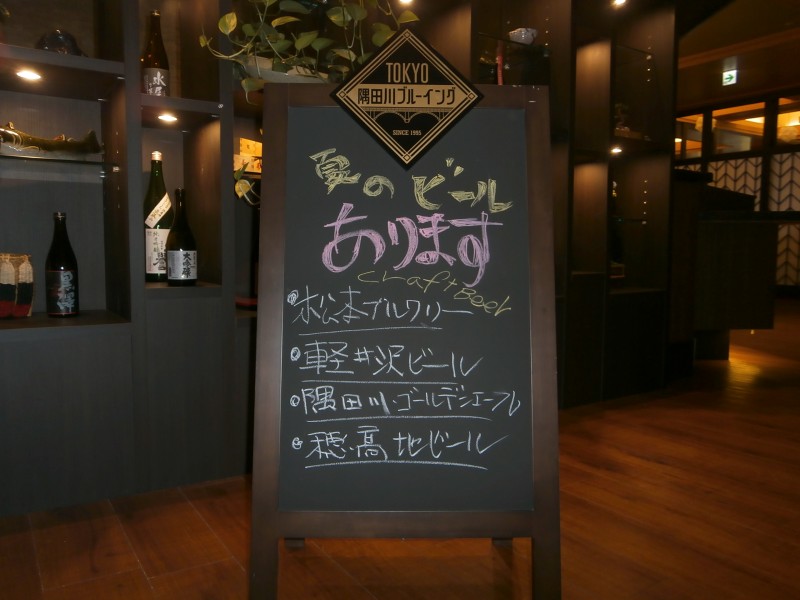 TOKYO
隅田川ブルーイング
SINCE 1995
夏のビール
あります
Craft Beer
松本ブルワリー
軽井沢ビール
隅田川・ゴールデンエール
穂高地ビール
大吟醸